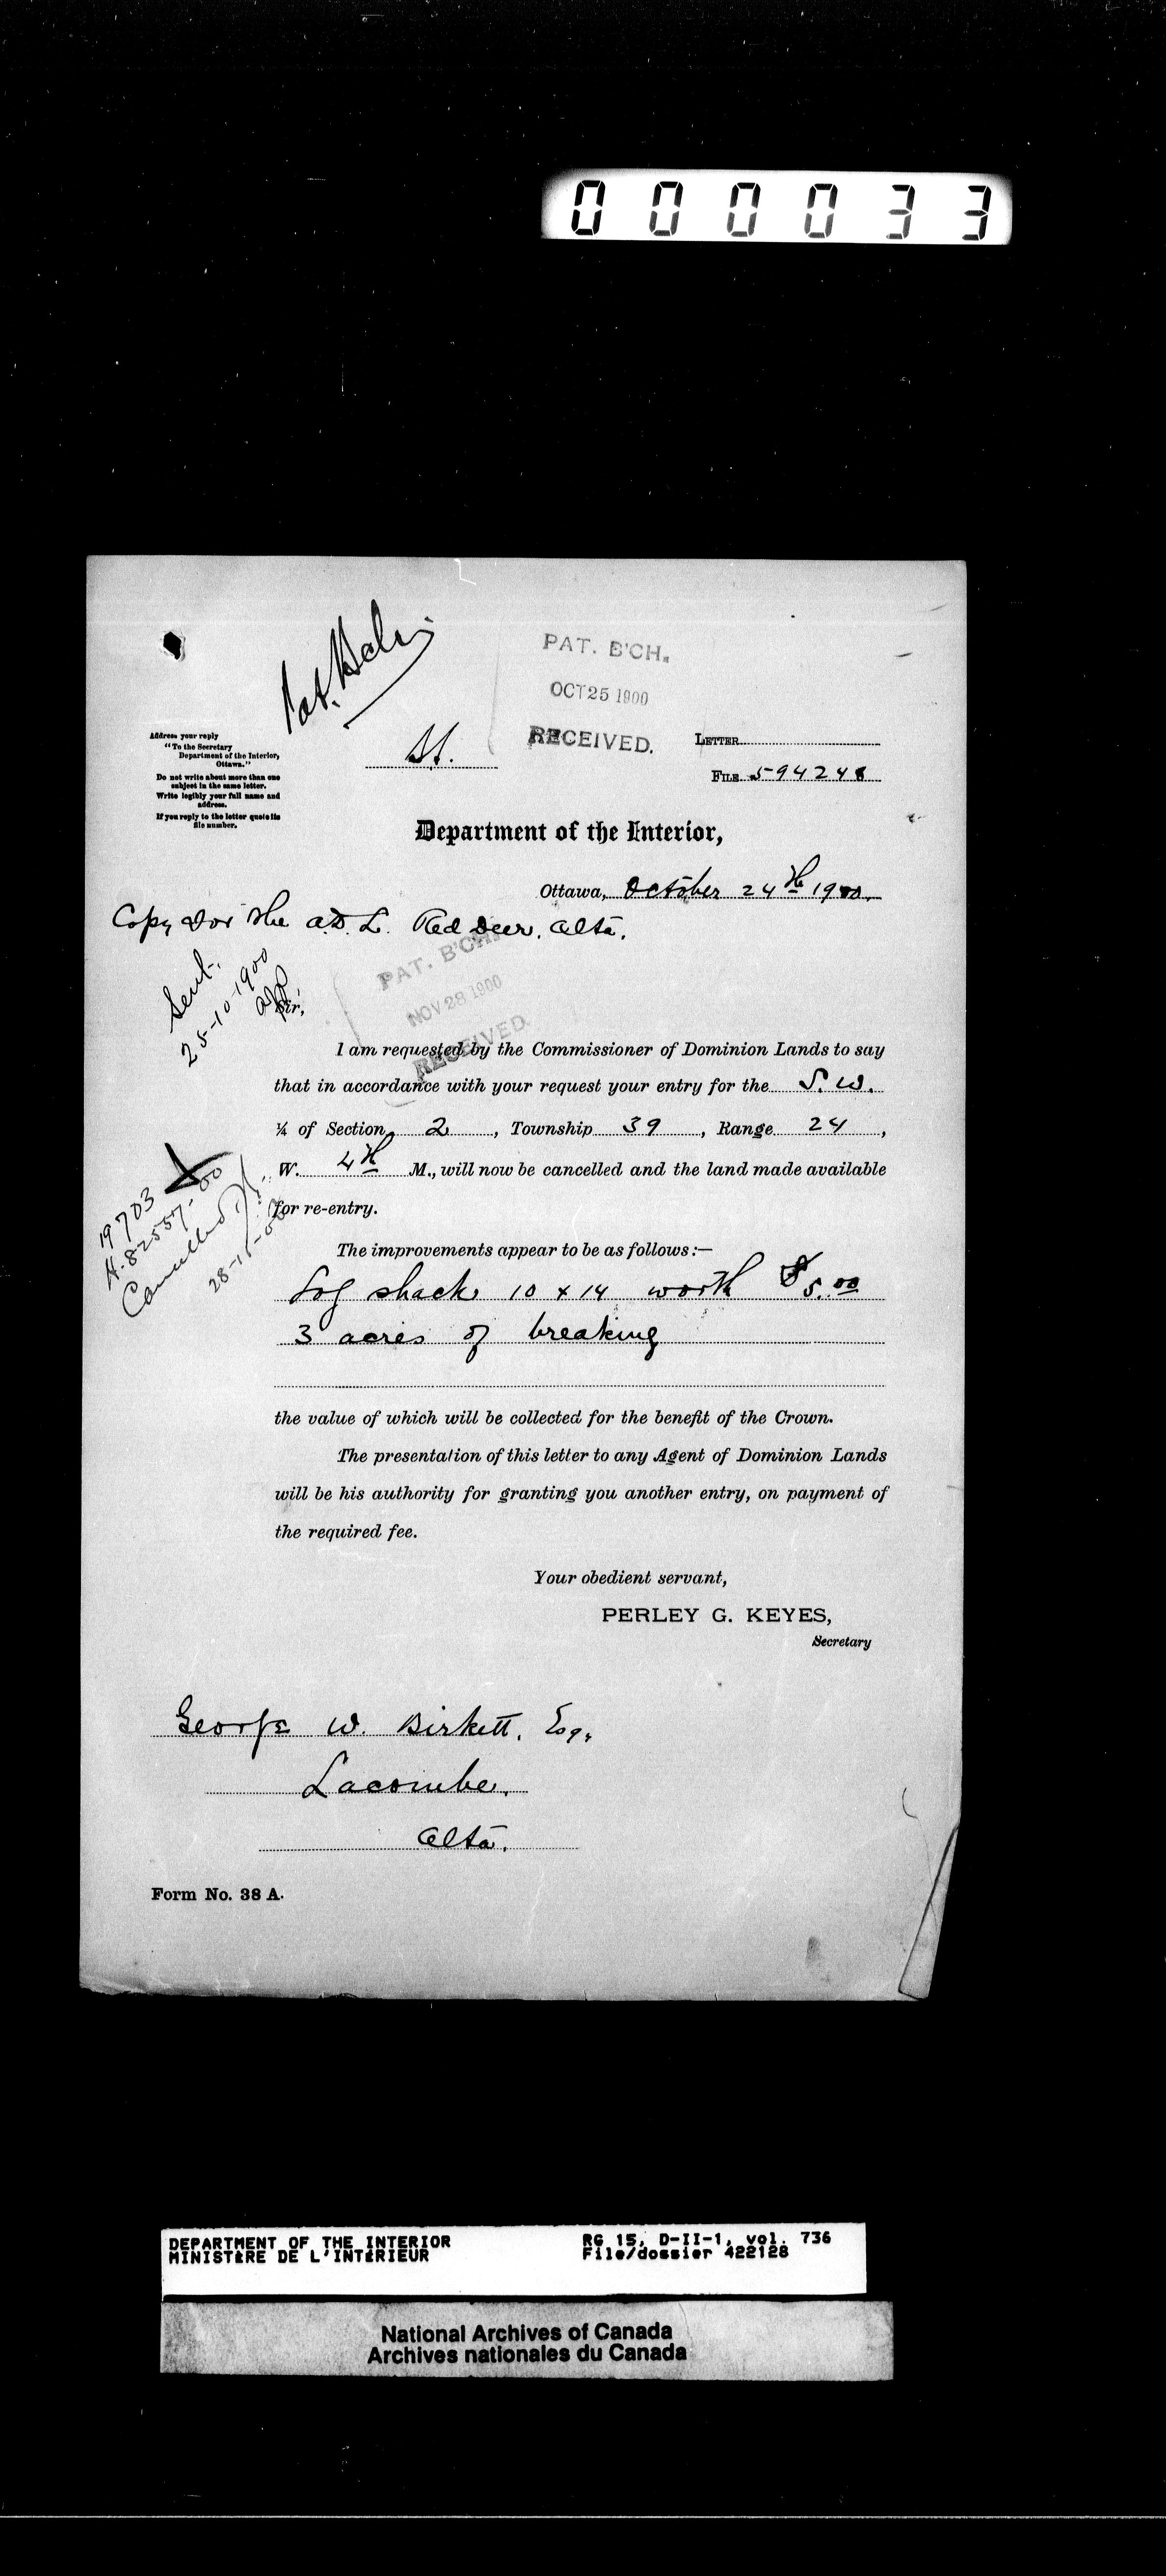 000033
PAT. B'CH.
OCT 25 1900
RECEIVED.
Address your reply
"To the Secretary
Department of the Interior,
Ottawa."
Do not write about more than one
subject in the same letter.
Write legibly your full name and
address.
If you reply to the letter quote its
file number.
LETTER
FILE 594248
Department of the Interior,
Ottawa, October 24th 1900.
Copy for the A.D.L. Red Deer, Alta.
Sent.
25-10-1900
PAT. B'CH.
NOV 28 1900
RECEIVED
Sir,
I am requested by the Commissioner of Dominion Lands to say
that in accordance with your request your entry for the S.W.
¼ of Section 2, Township 39, Range 24,
W. 4th M., will now be cancelled and the land made available
for re-entry.
19703
H.82557-00
Cancelled
28-11-00
The improvements appear to be as follows:—
Log shack 10 x 14 worth $5.00
3 acres of breaking
the value of which will be collected for the benefit of the Crown.
The presentation of this letter to any Agent of Dominion Lands
will be his authority for granting you another entry, on payment of
the required fee.
Your obedient servant,
PERLEY G. KEYES,
Secretary
George W. Birkett, Esq.
Lacombe,
Alta.
Form No. 38 A.
DEPARTMENT OF THE INTERIOR
MINISTÈRE DE L'INTÉRIEUR
RG 15, D-II-1, vol. 736
File/dossier 422128
National Archives of Canada
Archives nationales du Canada